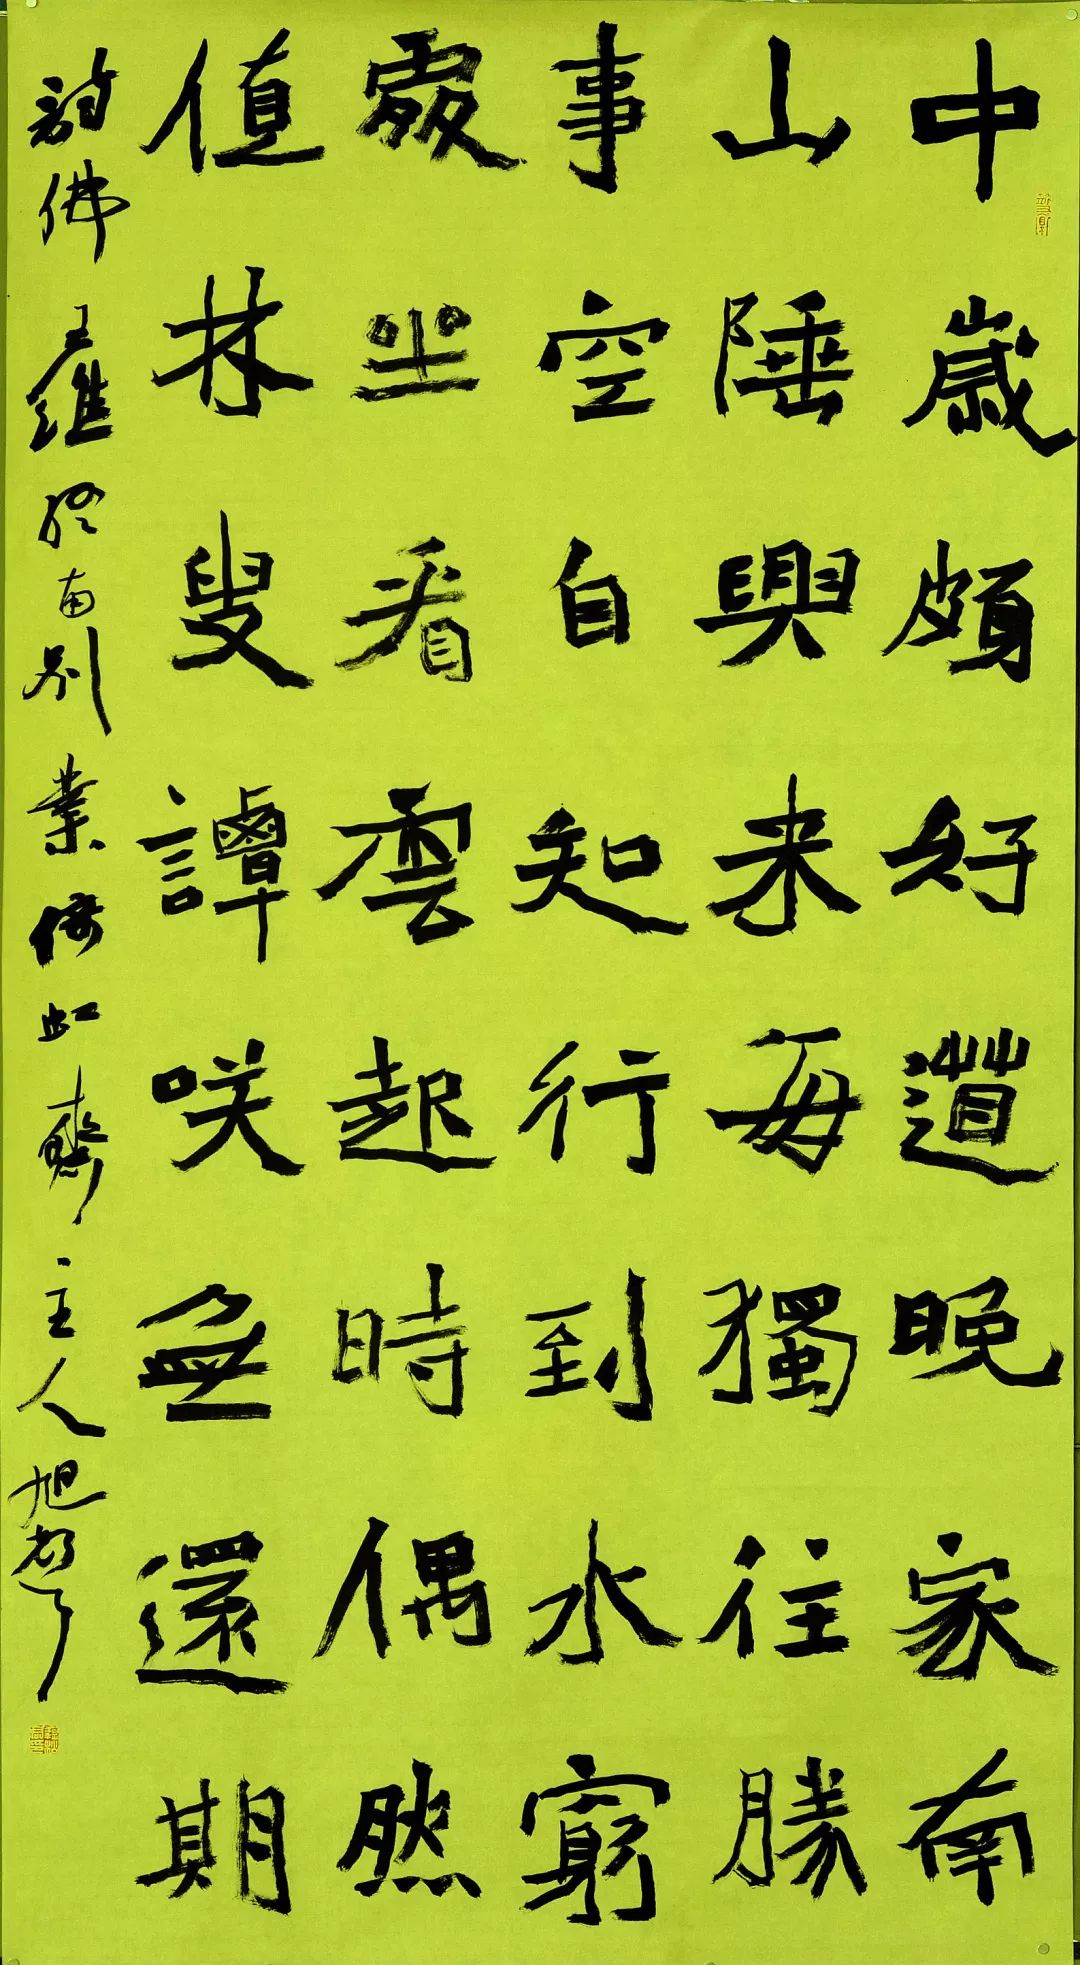 中歲頗好道晚家南
山陲興来每獨往勝
事空自知行到水窮
處坐看雲起時偶然
值林叟譚咲無還期
詩佛王維終南別業倚虹齋主人旭